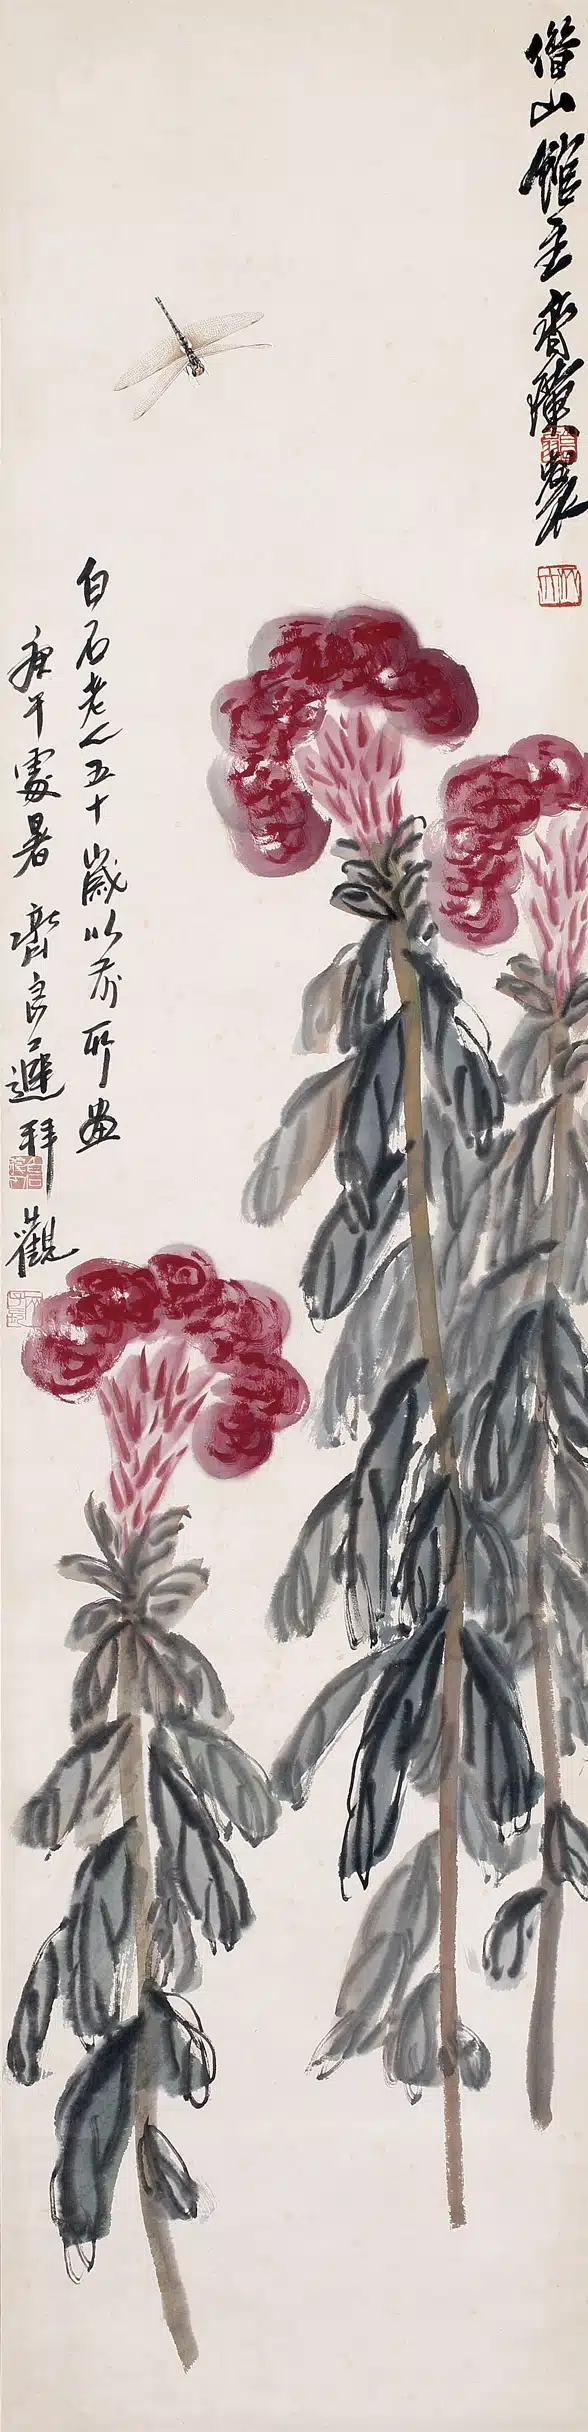 借山館主者齊璜製
白石老人五十歲以前所畫
庚午處暑齊良遲拜觀